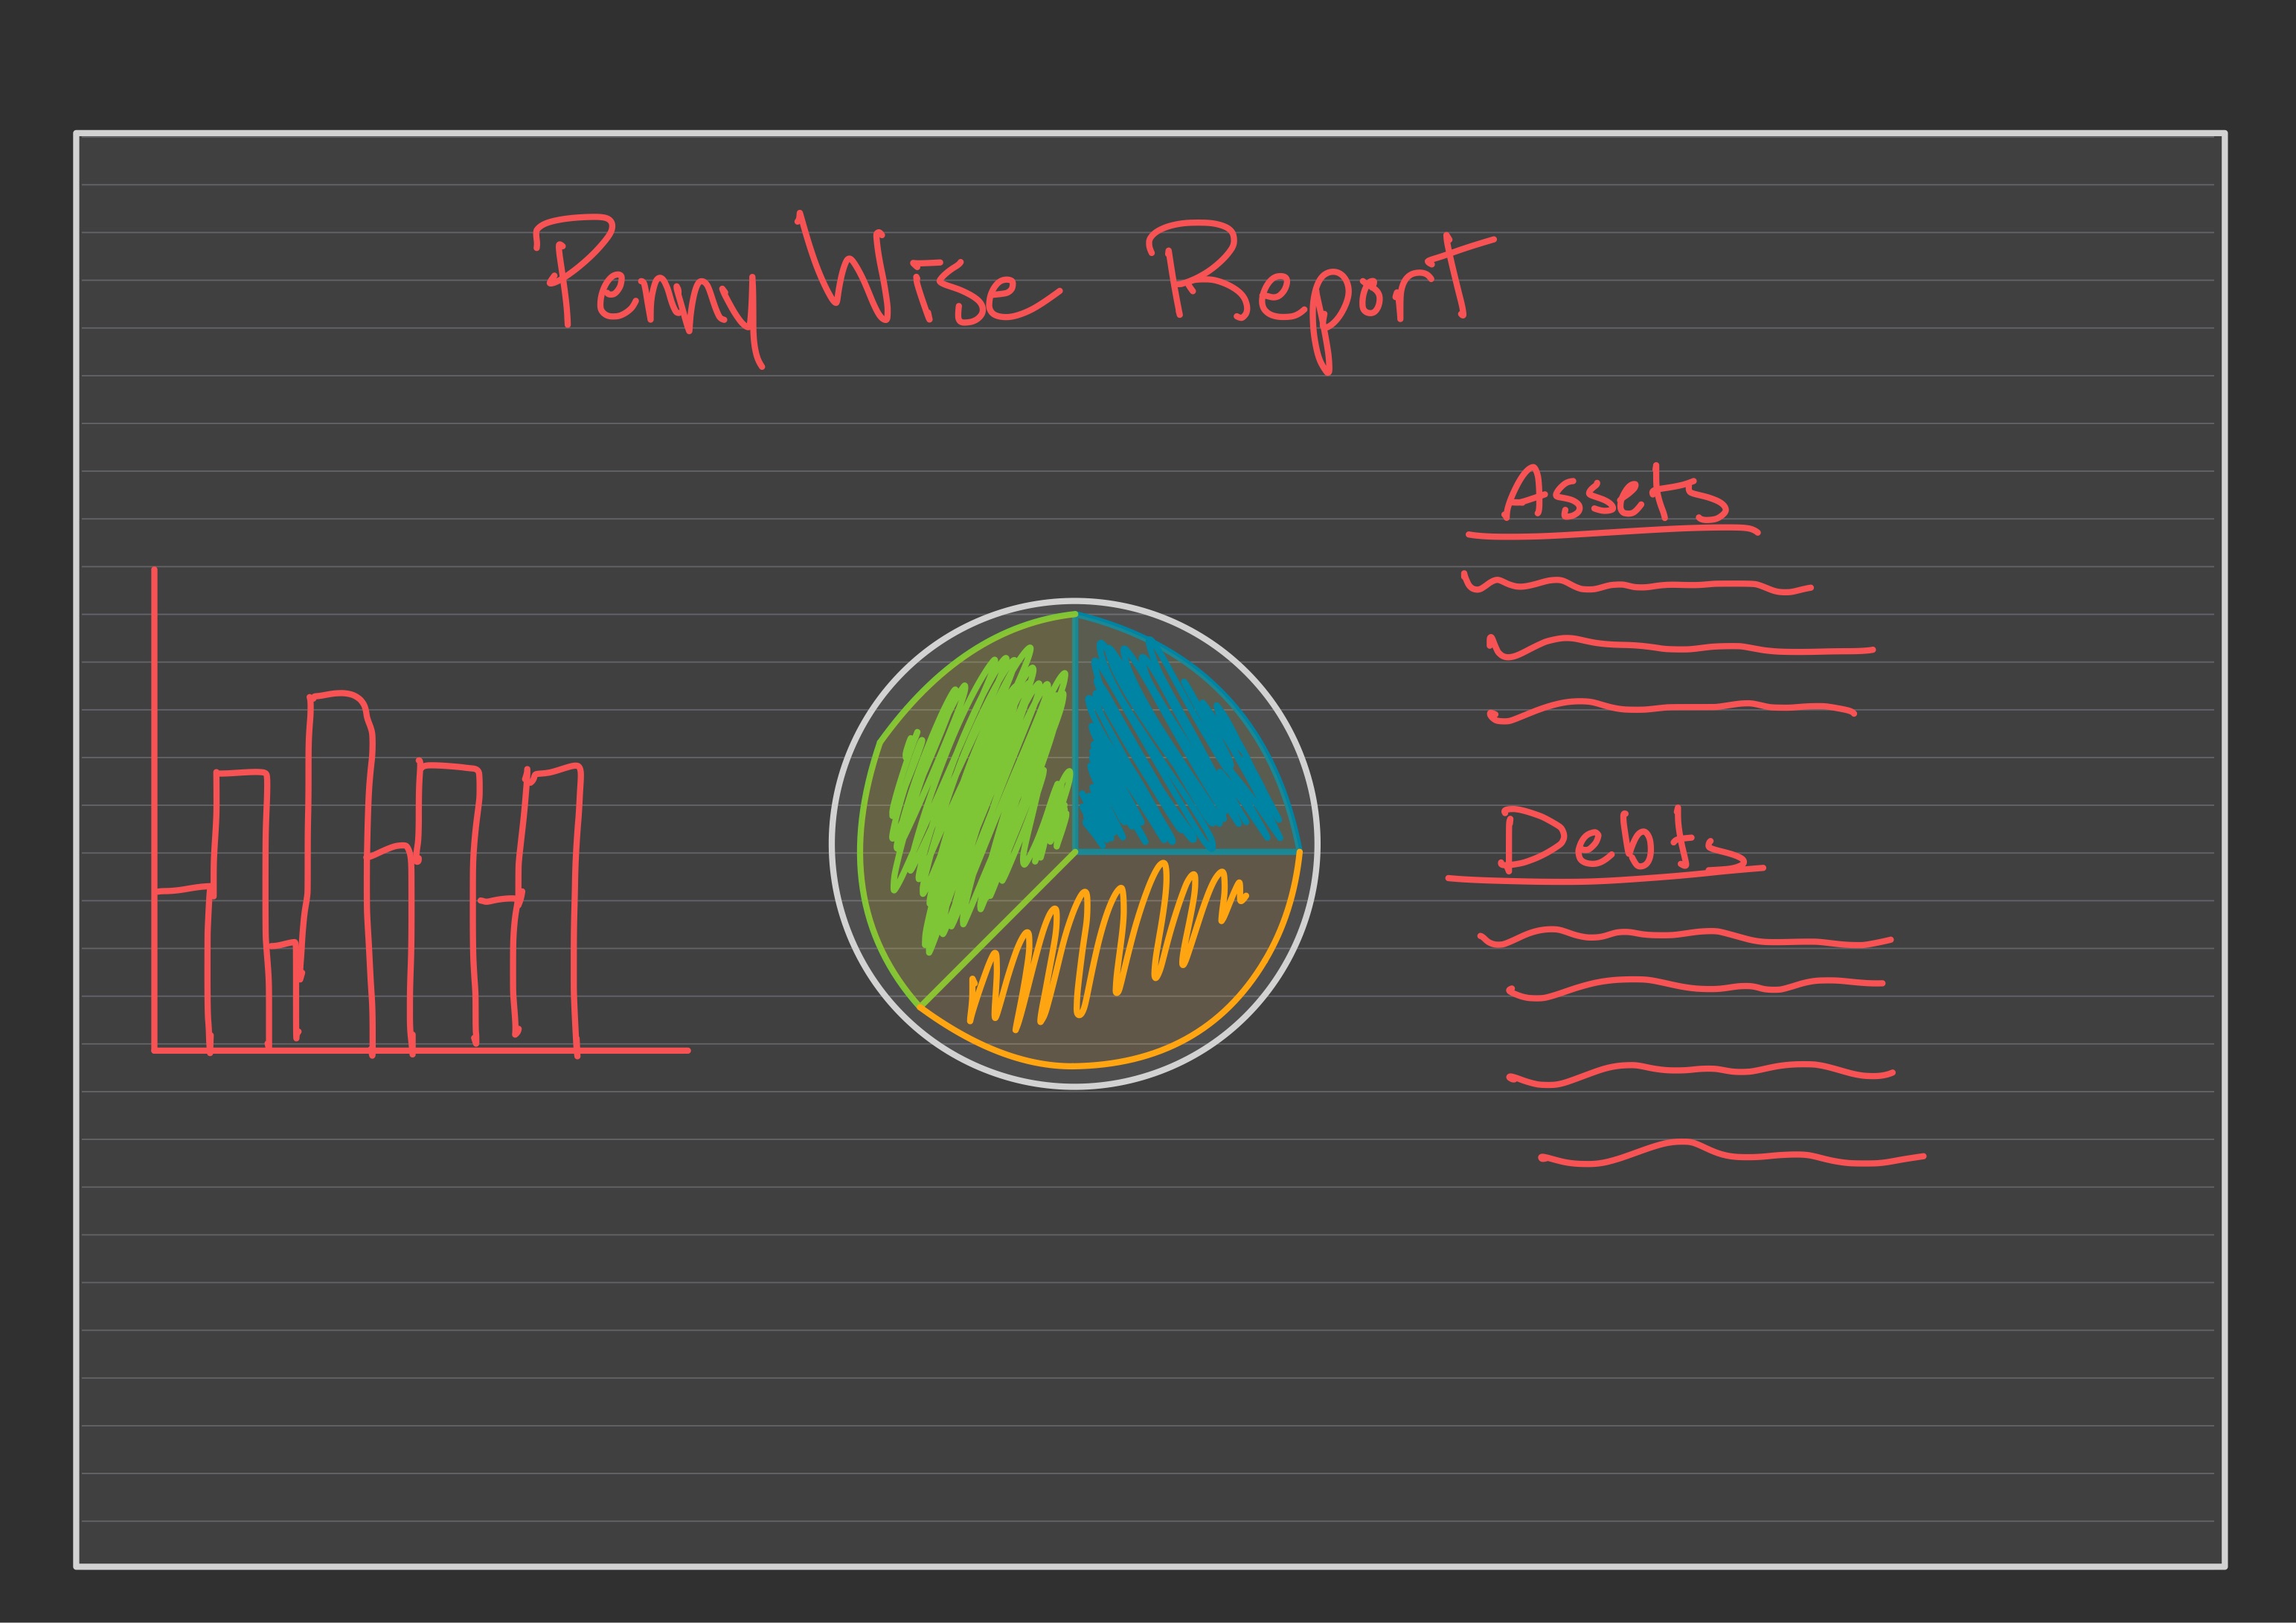 Penny Wise Report
Assets
Debts